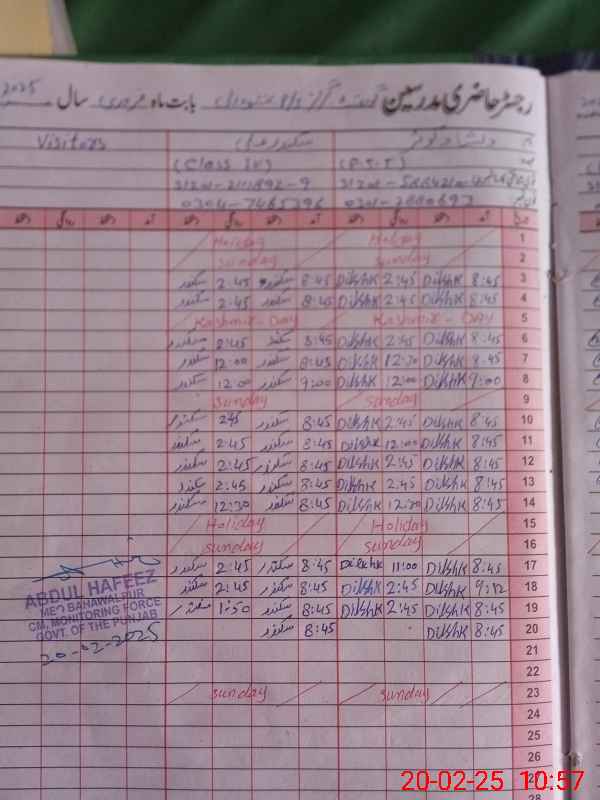 رجسٹر حاضری مدرسین بابت ماہ فروری سال 2025
Visitors سکندر علی
(Class IV) (P.S.T)
0304-7465396
Holiday Holiday 1
Sunday Sunday 2
سکندر 2:45 سکندر 8:45 Dilshk 2:45 Dilshk 8:45 3
سکندر 2:45 سکندر 8:45 Dilshk 2:45 Dilshk 8:45 4
Kashmir-Day Kashmir-DAY 5
سکندر 2:45 سکندر 8:45 Dilshk 2:45 Dilshk 8:45 6
سکندر 12:00 سکندر 8:45 Dilshk 12:30 Dilshk 8:45 7
سکندر 12:00 سکندر 9:00 Dilshk 12:00 Dilshk 9:00 8
Sunday Sunday 9
سکندر 2:45 سکندر 8:45 Dilshk 2:45 Dilshk 8:45 10
سکندر 2:45 سکندر 8:45 Dilshk 12:00 Dilshk 8:45 11
سکندر 2:45 سکندر 8:45 Dilshk 2:45 Dilshk 8:45 12
سکندر 2:45 سکندر 8:45 Dilshk 2:45 Dilshk 8:45 13
سکندر 12:30 سکندر 8:45 Dilshk 12:30 Dilshk 8:45 14
Holiday Holiday 15
Sunday Sunday 16
سکندر 2:45 سکندر 8:45 Dilshk 11:00 Dilshk 8:45 17
سکندر 2:45 سکندر 8:45 Dilshk 2:45 Dilshk 9:12 18
سکندر 1:50 سکندر 8:45 Dilshk 2:45 Dilshk 8:45 19
سکندر 8:45 Dilshk 8:45 20
21
22
Sunday Sunday 23
24
25
26
27
28
ABDUL HAFEEZ
BAHAWALPUR
CM, MONITORING FORCE
GOVT. OF THE PUNJAB
20-02-2025
20-02-25 10:57